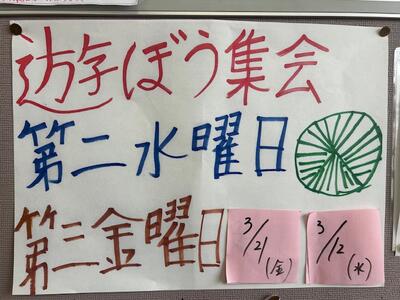 遊ぼう集会
第二水曜日
第三金曜日
3/21
(金)
3/12
(水)